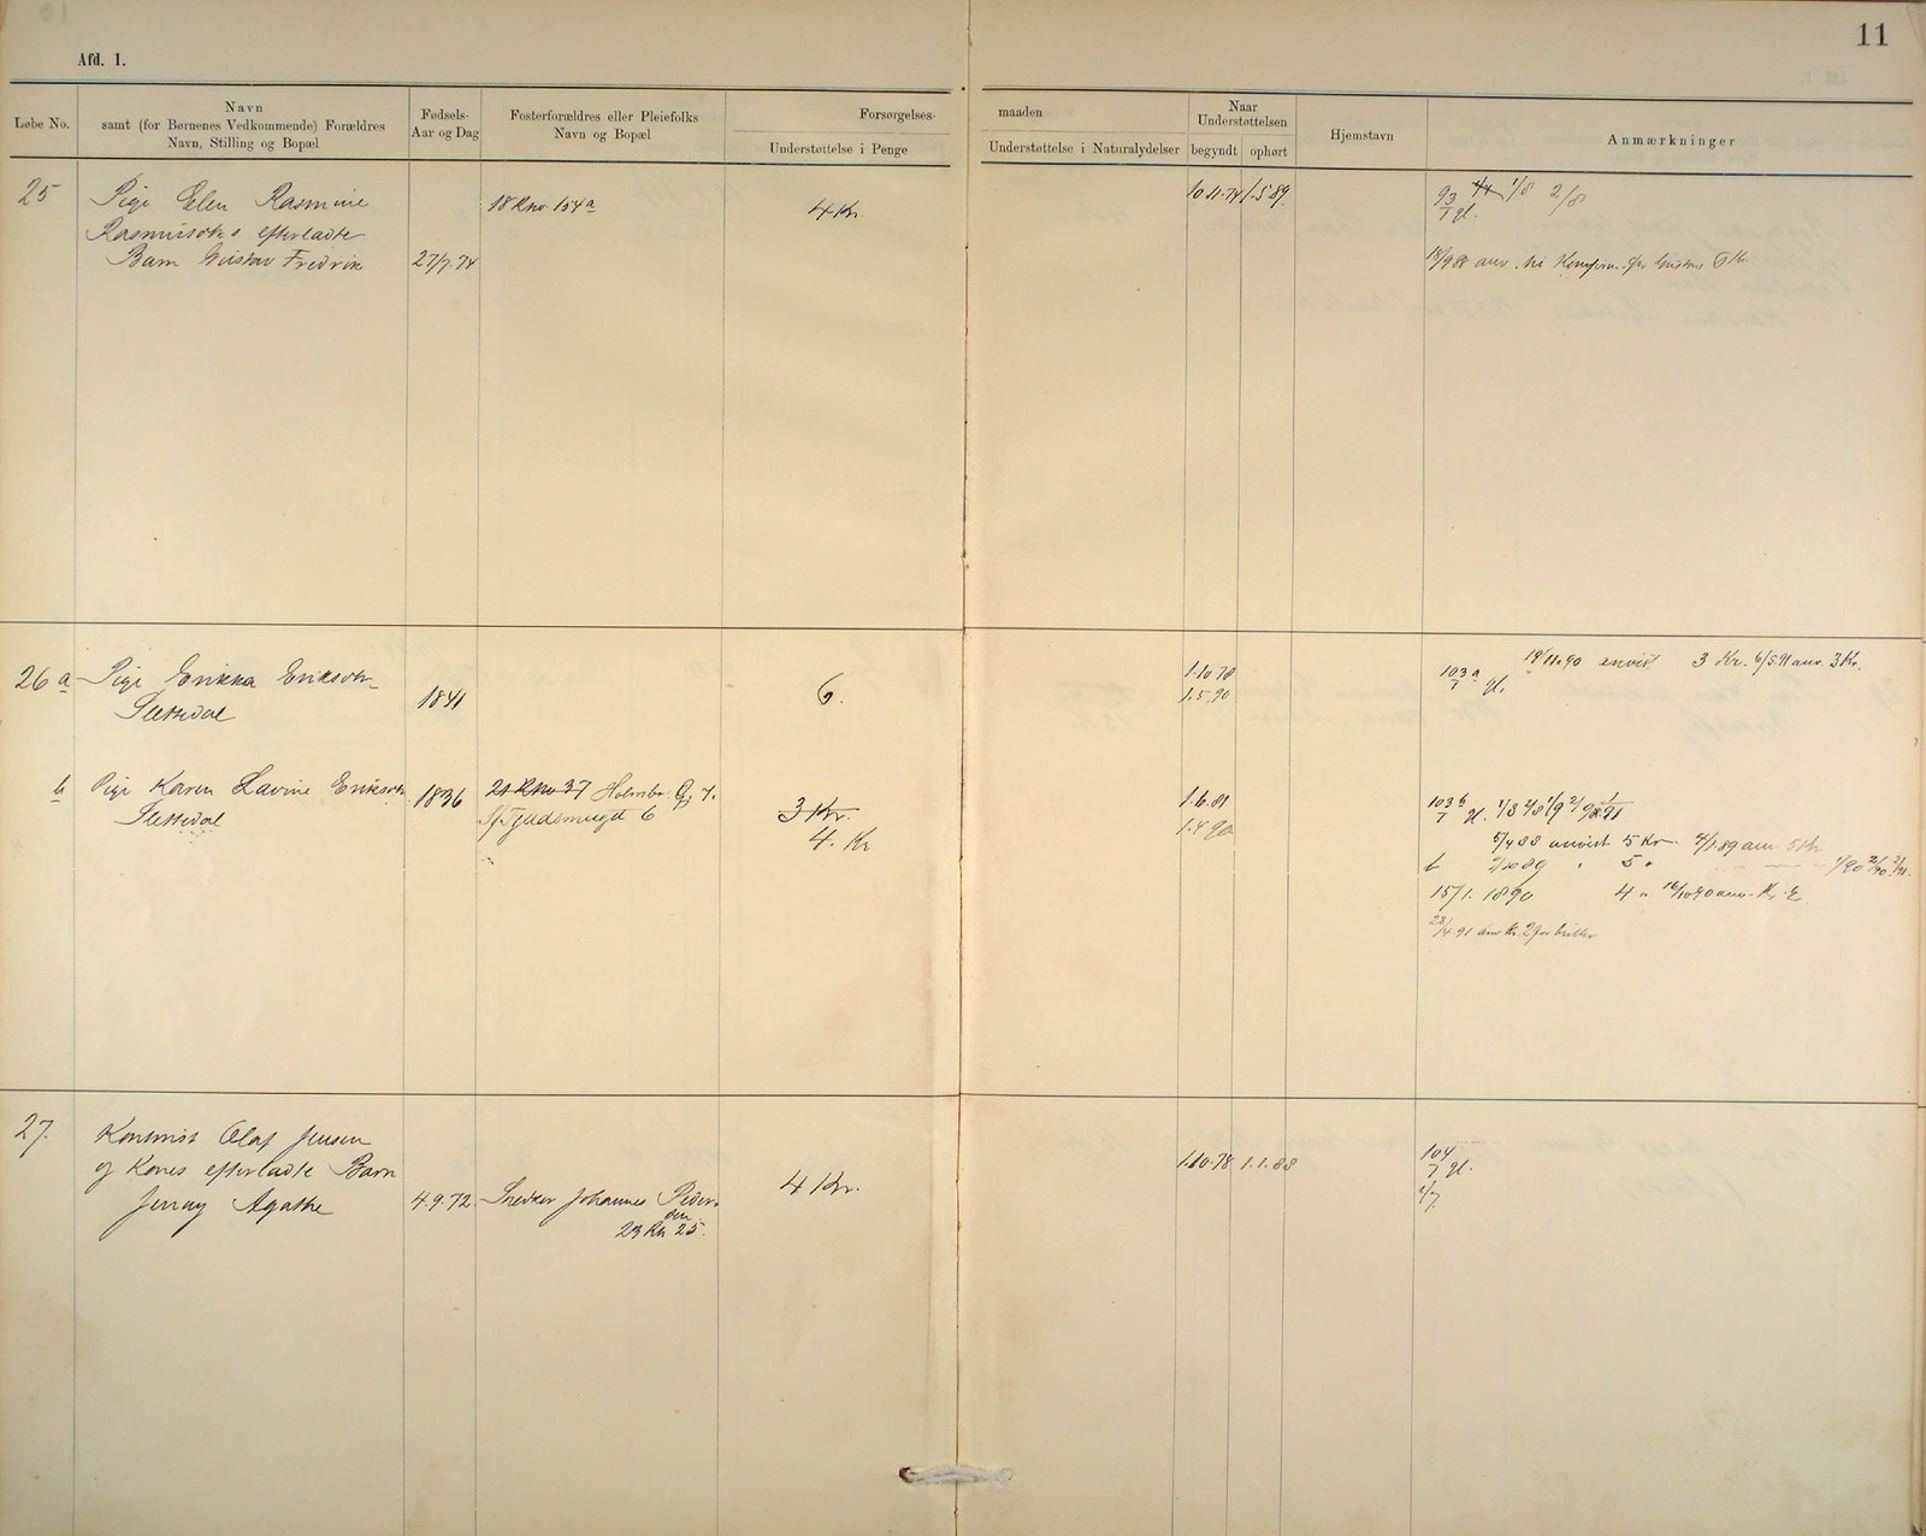 11
Afd. 1.
Løbe No.
Navn
samt (for Børnenes Vedkommende) Forældres
Navn, Stilling og Bopæl
Fødsels-
Aar og Dag
Fosterforældres eller Pleiefolks
Navn og Bopæl
Forsørgelses-
maaden
Understøttelse i Penge
Understøttelse i Naturalydelser
Naar
Understøttelsen
begyndt
ophørt
Hjemstavn
Anmærkninger
25
Pige Elen Rasmine
Rasmusens efterladte
Barn Gustav Fredrik
27/7.74
18 Rno. 154a
4 Kr.
10.11.74
1.5 89.
93
1/8 2/8
7 gl.
18/9 88 anv. til Konfirm. for Gustav 6 Kr.
26 a
Pige Erikka Eriksen
Slettedal
1841
6.
1.10 78
1.5.90
103a
7 gl.
19/11.90 anvist 3 Kr. 6/5.91 anv. 3 Kr.
b
Pige Karen Lavine Eriksen
Slettedal
1836
21 Rno 37 Holmbr. G. 7.
Fjeldsmuget 6
3 Kr.
4. Kr
1.6.81
1.4 90
103b
7 gl. 1/8 2/8 1/9 2/9
5/4 88 anvist 5 Kr. 4/1.89 anv 5 Kr
b 2/10 89 " 5 "
1/90 2/90 2/91.
15/1. 1890 4 " 16/10 90 anv. Kr. 2.
28/4.91 anv Kr. 2 for briller
27.
Kontorist Olaf Jensen
og Kones efterladte Barn
Jenny Agathe
4.9.72
Snedker Johannes Peder-
sen
23 Rn 25.
4 Kr.
1.10.78
1.1.88
104
7 gl.
1/7